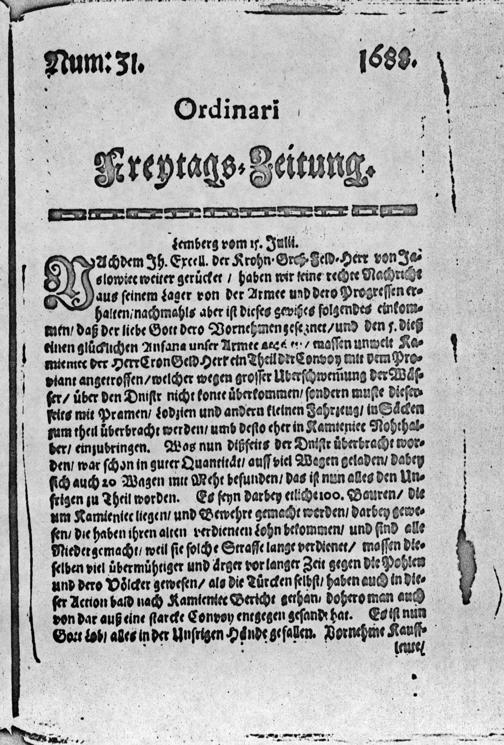 Num: 31.
1688.
Ordinari
Freytags-Zeitung.
Lemberg vom 15. Julii.
NAchdem Ih. Excell. der Krohn-Groß-Feld-Herr von Ja-
slowiec weiter gerücket / haben wir keine rechte Nachricht
aus seinem Lager von der Armee und dero Progressen er-
halten/ nachmahls aber ist dieses gewißes folgendes einkom-
men/ daß der liebe Gott dero Vornehmen gesegnet/ und den 5. dieß
einen glücklichen Anfang unser Armee / massen unweit Ka-
mieniec der Herr Cron Feld-Herr ein Theil der Convoy mit dem Pro-
viant angetroffen/ welcher wegen grosser Uberschwemung der Wäs-
ser/ über den Dnistr nicht konte überkommen/ sondern muste dieser-
seits mit Pramen/ Lodzien und andern kleinen Fahrzeug/ in Säcken
zum theil überbracht werden/ umb desto eher in Kamieniec Nohthal-
ber/ einzubringen. Was nun dißseits der Dnistr überbracht wor-
den/ war schon in guter Quantität/ auff viel Wagen geladen/ dabey
sich auch 20 Wagen mit Mehl befunden/ das ist nun alles den Un-
srigen zu Theil worden. Es seyn darbey etliche 100. Bauren/ die
um Kamieniec liegen/ und Bewehrt gemacht werden/ darbey gewe-
sen/ die haben ihren alten verdienten Lohn bekommen/ und sind alle
Niedergemacht/ weil sie solche Straffe lange verdienet/ massen die-
selben viel übermühtiger und ärger vor langer Zeit gegen die Pohlen
und dero Völcker gewesen/ als die Türcken selbst/ haben auch in die-
ser Action bald nach Kamieniec Bericht gethan/ dohero man auch
von dar auß eine starcke Convoy entgegen gesandt hat. Es ist nun
Gott Lob/ alles in der Unsrigen Hände gefallen. Vornehme Kauff-
leute/